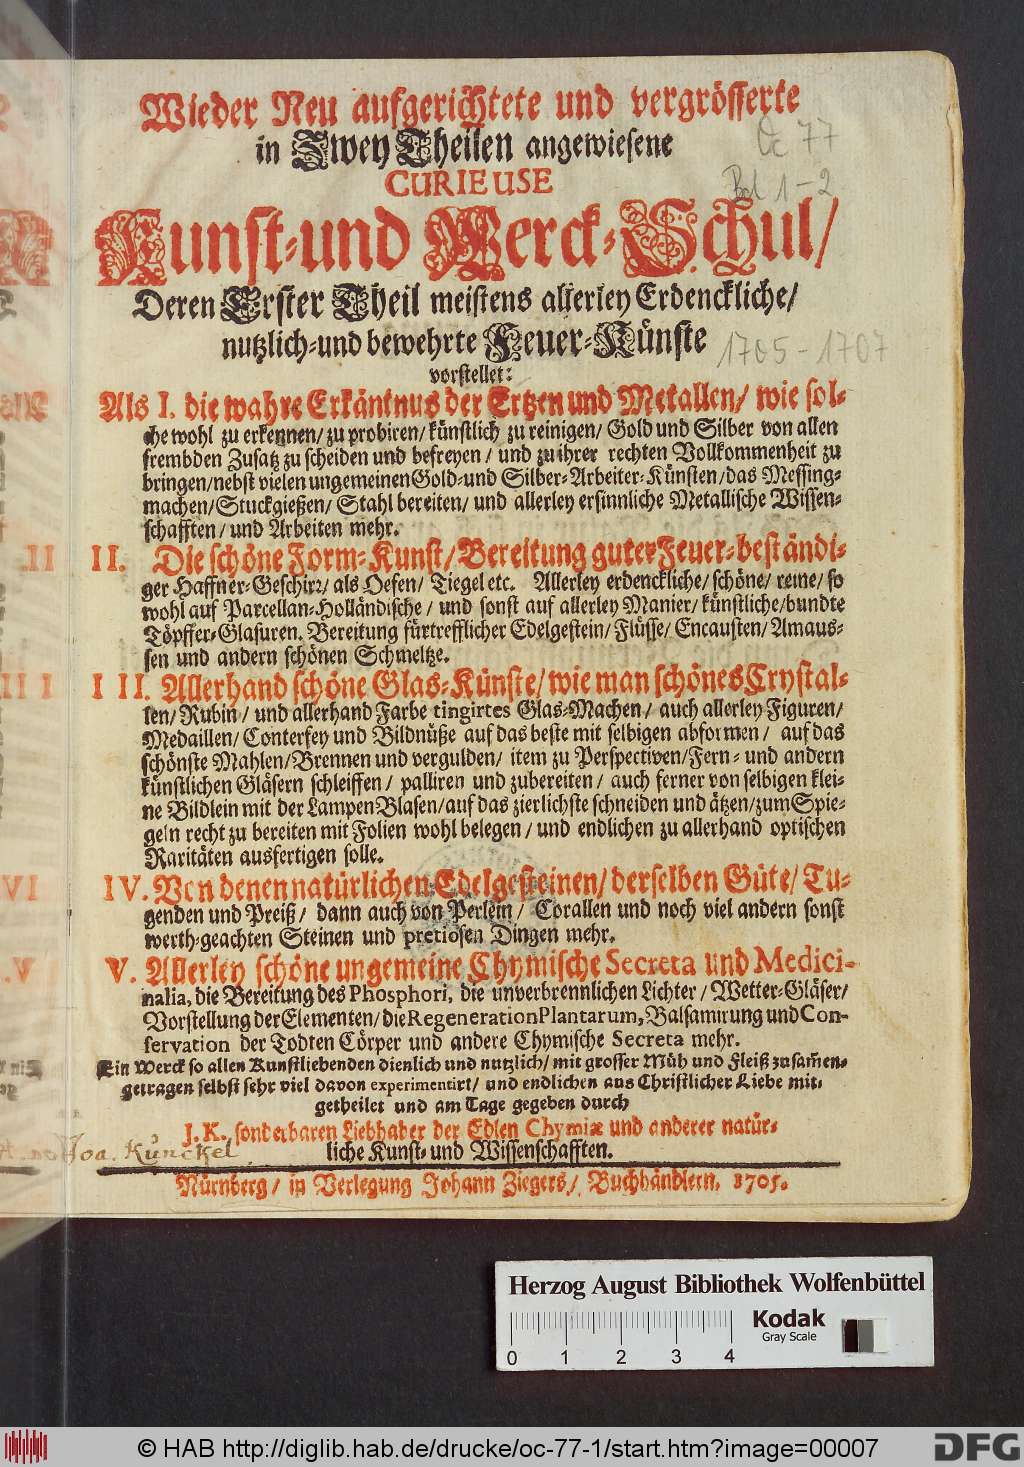 Wieder Neu aufgerichtete und vergrösserte
in Zwey Theilen angewiesene
Oc 77
CURIEUSE
Bd 1-2
Kunst-und Werck-Schul/
Deren Erster Theil meistens allerley Erdenckliche/
nutzlich-und bewehrte Feuer-Künste
1705-1707
vorstellet:
Als I. die wahre Erkäntnus der Ertzen und Metallen/ wie sol-
che wohl zu erkennen/ zu probiren/ künstlich zu reinigen/ Gold und Silber von allen
frembden Zusatz zu scheiden und befreyen/ und zu ihrer rechten Vollkommenheit zu
bringen/ nebst vielen ungemeinen Gold-und Silber-Arbeiter-Künsten/ das Messing-
machen/ Stuckgießen/ Stahl bereiten/ und allerley ersinnliche Metallische Wissen-
schafften/ und Arbeiten mehr.
II. Die schöne Form-Kunst/ Bereitung guter Feuer-beständi-
ger Haffner-Geschirr/ als Oefen/ Tiegel etc. Allerley erdenckliche/ schöne/ reine/ so
wohl auf Parcellan-Holländische/ und sonst auf allerley Manier/ künstliche/ bundte
Töpffer-Glasuren. Bereitung fürtrefflicher Edelgestein/ Flüsse/ Encausten/ Amaus-
sen und andern schönen Schmeltze.
III. Allerhand schöne Glas-Künste/ wie man schönes Crystal-
len/ Rubin/ und allerhand Farbe tingirtes Glas-Machen/ auch allerley Figuren/
Medaillen/ Conterfey und Bildnüße auf das beste mit selbigen abformen/ auf das
schönste Mahlen/ Brennen und vergulden/ item zu Perspectiven/ Fern- und andern
künstlichen Gläsern schleiffen/ palliren und zubereiten/ auch ferner von selbigen klei-
ne Bildlein mit der Lampen Blasen/ auf das zierlichste schneiden und ätzen/ zum Spie-
geln recht zu bereiten mit Folien wohl belegen/ und endlichen zu allerhand optischen
Raritäten ausfertigen solle.
IV. Von denen natürlichen Edelgesteinen/ derselben Güte/ Tu-
genden und Preiß/ dann auch von Perlein/ Corallen und noch viel andern sonst
werth-geachten Steinen und pretiosen Dingen mehr.
V. Allerley schöne ungemeine Chymische Secreta und Medici-
nalia, die Bereitung des Phosphori, die unverbrennlichen Lichter/ Wetter-Gläser/
Vorstellung der Elementen/ die Regeneration Plantarum, Balsamirung und Con-
servation der Todten Cörper und andere Chymische Secreta mehr.
Ein Werck so allen Kunstliebenden dienlich und nutzlich/ mit grosser Müh und Fleiß zusam̄en-
getragen selbst sehr viel davon experimentirt/ und endlichen aus Christlicher Liebe mit-
getheilet und am Tage gegeben durch
J. K. sonderbaren Liebhaber der Edlen Chymiæ und anderer natür-
Joa. Kunckel
liche Kunst-und Wissenschafften.
Nürnberg/ in Verlegung Johann Ziegers/ Buchhändlern. 1705.
Herzog August Bibliothek Wolfenbüttel
Kodak
Gray Scale
0 1 2 3 4
© HAB http://diglib.hab.de/drucke/oc-77-1/start.htm?image=00007
DFG